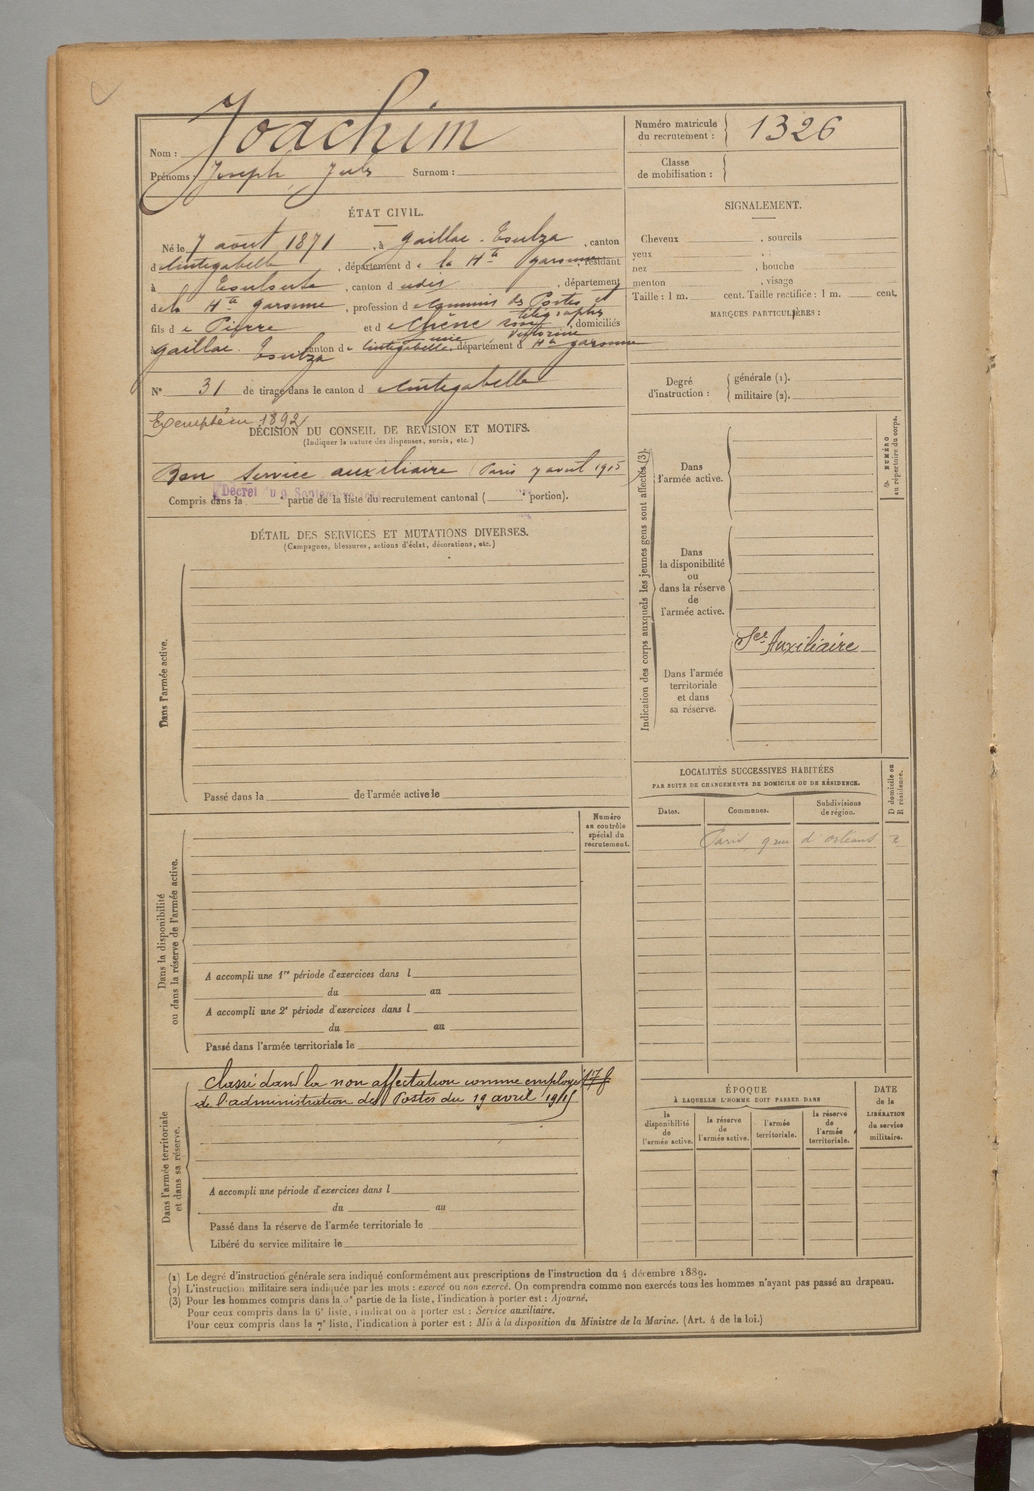 Nom : Joachim
Prénoms : Joseph, Jules Surnom :
Numéro matricule du recrutement : 1326
Classe de mobilisation :
ÉTAT CIVIL.
Né le 7 août 1871, à Gaillac-Toulza, canton
d Cintegabelle, département d e la Hte Garonne, résidant
à Toulouse, canton d udit, département
de la Hte Garonne, profession d e Commis des Postes et télégraphes
fils d e Pierre et d e, domiciliés
à Gaillac Toulza canton d e Cintegabelle, département d Hte Garonne
N° 31 de tirage dans le canton d e Cintegabelle
Exempté en 1892
DÉCISION DU CONSEIL DE REVISION ET MOTIFS.
(Indiquer la nature des dispenses, sursis, etc.)
Bon service auxiliaire (Paris 7 avril 1915
Décret du 9 Septembre
Compris dans la e partie de la liste du recrutement cantonal ( e portion).
DÉTAIL DES SERVICES ET MUTATIONS DIVERSES.
(Campagnes, blessures, actions d'éclat, décorations, etc.)
Dans l'armée active.
Passé dans la de l'armée active le
Numéro au contrôle spécial du recrutement.
Dans la disponibilité ou dans la réserve de l'armée active.
A accompli une 1re période d'exercices dans l
du au
A accompli une 2e période d'exercices dans l
du au
Passé dans l'armée territoriale le
Dans l'armée territoriale et dans sa réserve.
Classé dans la non affectation comme employé
de l'administration des Postes du 19 avril 1915
A accompli une période d'exercices dans l
du au
Passé dans la réserve de l'armée territoriale le
Libéré du service militaire le
SIGNALEMENT.
Cheveux , sourcils
yeux , :
nez , bouche
menton , visage
Taille : 1 m. cent. Taille rectifiée : 1 m. cent.
MARQUES PARTICULIÈRES :
Degré d'instruction : générale (1).
militaire (2).
Indication des corps auxquels les jeunes gens sont affectés (3).
NUMÉRO au répertoire du corps.
Dans l'armée active.
Dans la disponibilité ou dans la réserve de l'armée active.
Dans l'armée territoriale et dans sa réserve.
Sce Auxiliaire
LOCALITÉS SUCCESSIVES HABITÉES
PAR SUITE DE CHANGEMENTS DE DOMICILE OU DE RÉSIDENCE.
Dates. Communes. Subdivisions de région. D domicile ou R résidence.
Paris, 9 d'orléans R
ÉPOQUE
À LAQUELLE L'HOMME DOIT PASSER DANS
la disponibilité de l'armée active.
la réserve de l'armée active.
l'armée territoriale.
la réserve de l'armée territoriale.
DATE de la LIBÉRATION du service militaire.
(1) Le degré d'instruction générale sera indiqué conformément aux prescriptions de l'instruction du 4 décembre 1889.
(2) L'instruction militaire sera indiquée par les mots : exercé ou non exercé. On comprendra comme non exercés tous les hommes n'ayant pas passé au drapeau.
(3) Pour les hommes compris dans la 5e partie de la liste, l'indication à porter est : Ajourné.
Pour ceux compris dans la 6e liste, l'indication à porter est : Service auxiliaire.
Pour ceux compris dans la 7e liste, l'indication à porter est : Mis à la disposition du Ministre de la Marine. (Art. 4 de la loi.)